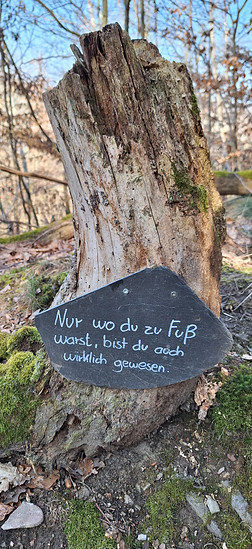 Nur wo du zu Fuß
warst, bist du auch
wirklich gewesen.